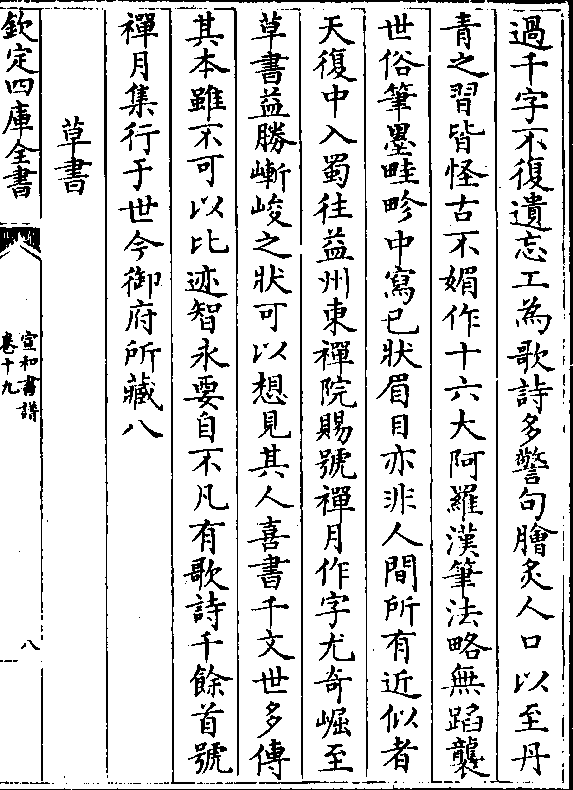 過千字不復遺忘工為歌詩多警句膾炙人口以至丹
青之習皆怪古不媚作十六大阿羅漢筆法略無蹈襲
世俗筆墨畦畛中寫已狀眉目亦非人間所有近似者
天復中入蜀往益州東禪院賜號禪月作字尤奇崛至
草書益勝嶄峻之狀可以想見其人喜書千文世多傳
其本雖不可以比迹智永要自不凡有歌詩千餘首號
禪月集行于世今御府所藏八
草書
欽定四庫全書
宣和書譜
卷十九
八